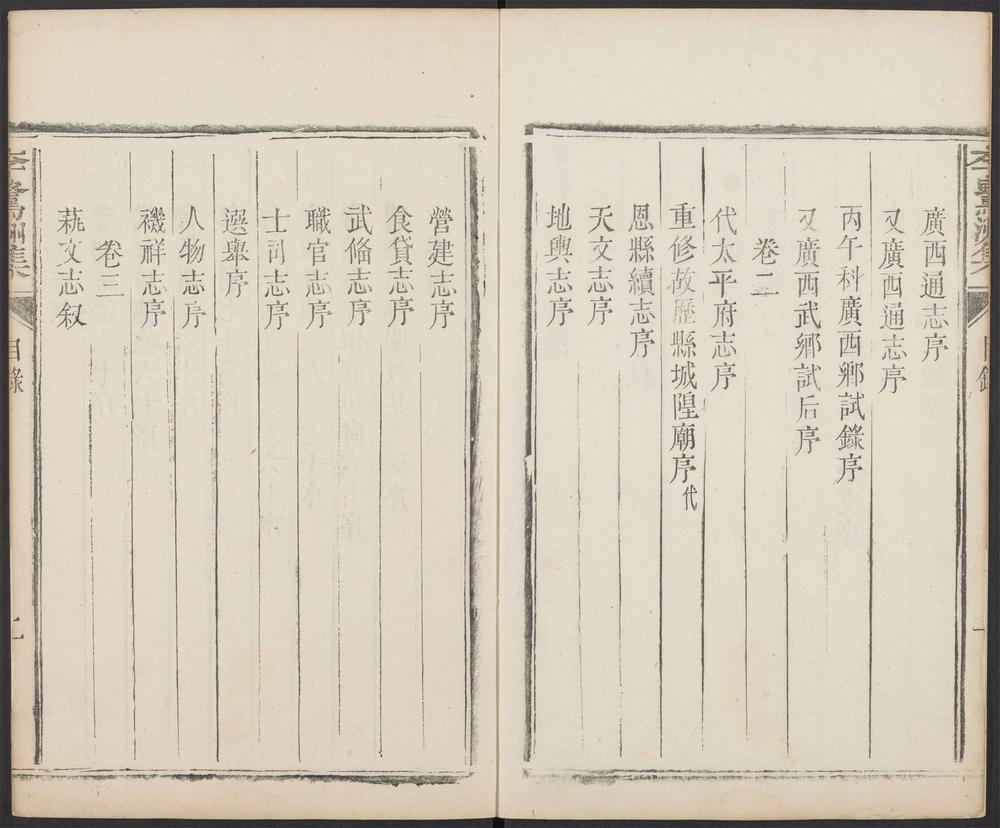 廣西通志序
又廣西通志序
丙午科廣西鄉試錄序
又廣西武鄉試后序
卷二
代太平府志序
重修故歷縣城隍廟序代
恩縣續志序
天文志序
地輿志序
營建志序
食貨志序
武俻志序
職官志序
士司志序
選舉序
人物志序
禨祥志序
卷三
蓺文志叙
目錄